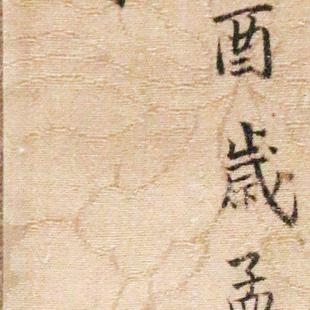 酉歲孟